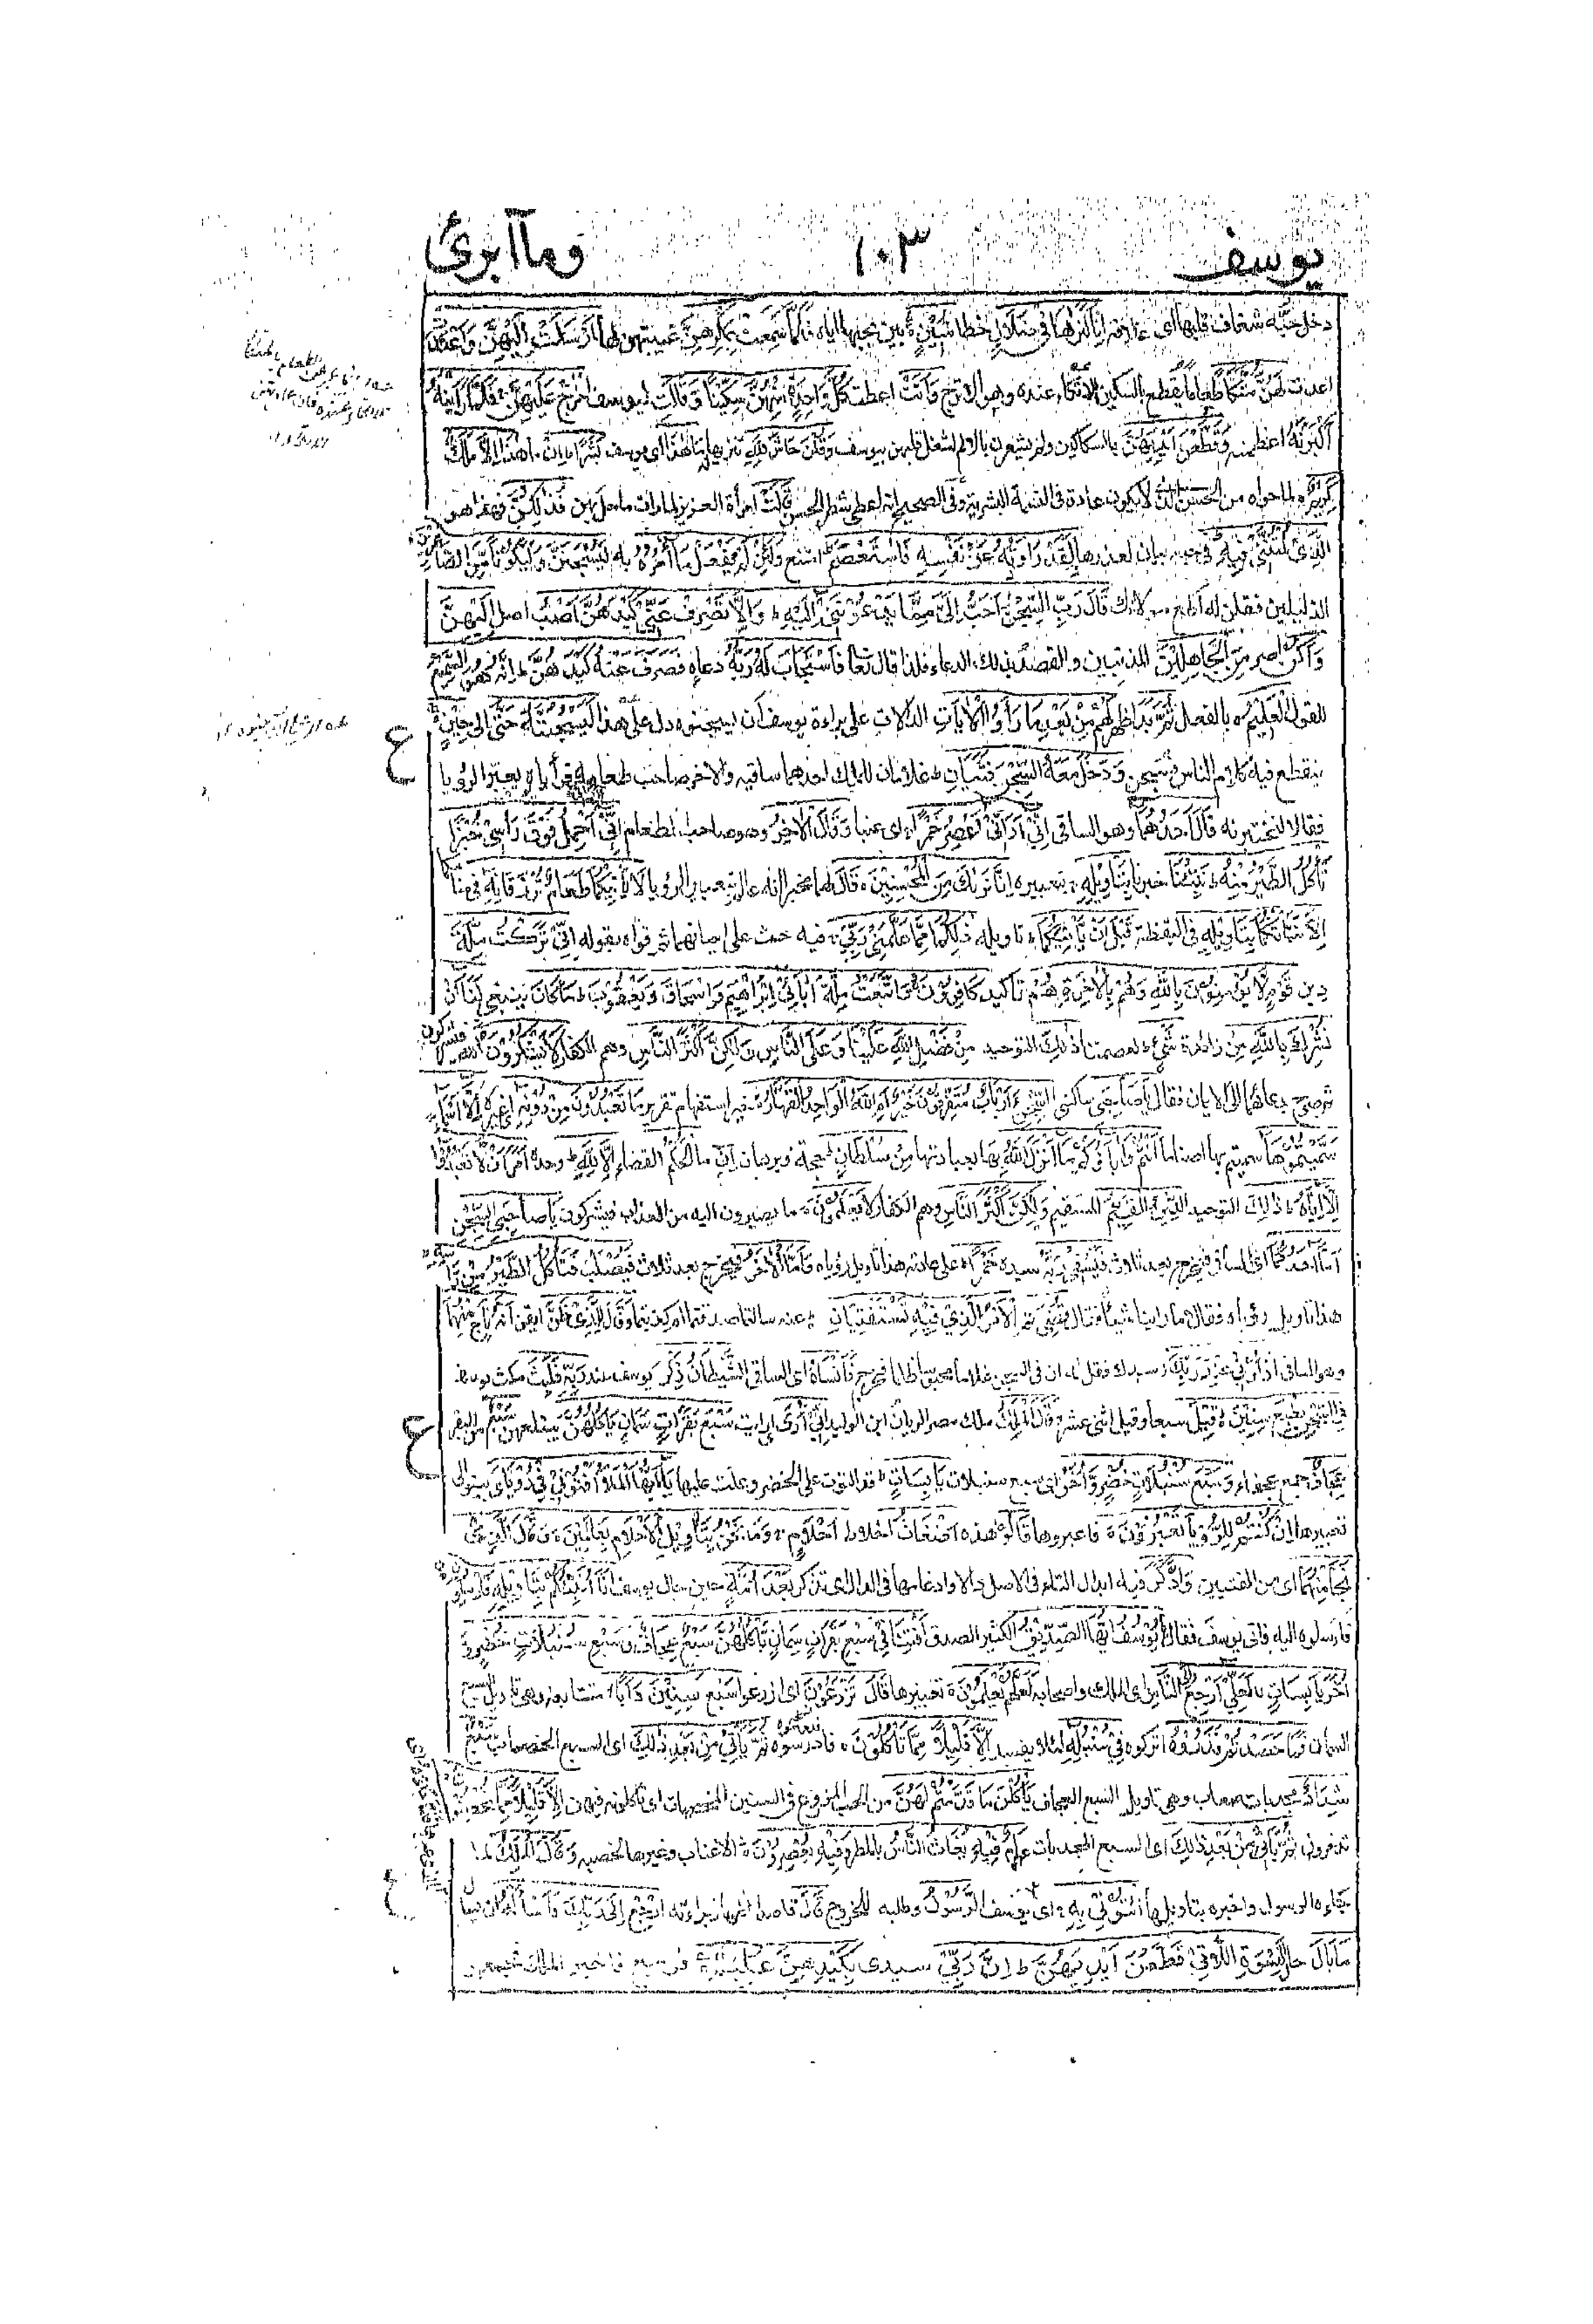 يوسف ١٠٣ وماآبرئ
دخل حبّه شغاف قلبها اى غلافه اِنَّا لَنَرٰهَا فِىْ ضَلَالٍ خطأ مُّبِيْنٍ بين بحبها اياه فَلَمَّا سَمِعَتْ بِمَكْرِهِنَّ غيبتهن لها اَرْسَلَتْ اِلَيْهِنَّ وَاَعْتَدَتْ
اعدت لَهُنَّ مُتَّكَأً طعاما يقطع بالسكين للاتكاء عنده وهو الاترج وَّاٰتَتْ اعطت كُلَّ وَاحِدَةٍ مِّنْهُنَّ سِكِّيْنًا وَّقَالَتِ ليوسف اخْرُجْ عَلَيْهِنَّ فَلَمَّا رَاَيْنَهٗ
اَكْبَرْنَهٗ اعظمنه وَقَطَّعْنَ اَيْدِيَهُنَّ بالسكاكين ولم يشعرن بالالم لشغل قلبهن بيوسف وَقُلْنَ حَاشَ لِلّٰهِ تنزيها له مَا هٰذَا اى يوسف بَشَرًا اِنْ ما هٰذَا اِلَّا مَلَكٌ
كَرِيْمٌ لما حواه من الحسن الذى لا يكون عادة فى النسمة البشرية وفى الصحيح انه اعطى شطر الحسن قَالَتْ امرأة العزيز لما رات ما حل بهن فَذٰلِكُنَّ فهذا هو
الَّذِىْ لُمْتُنَّنِىْ فِيْهِ فى حبه بيان لعذرها وَلَقَدْ رَاوَدْتُّهٗ عَنْ نَّفْسِهٖ فَاسْتَعْصَمَ امتنع وَلَئِنْ لَّمْ يَفْعَلْ مَا اٰمُرُهٗ به لَيُسْجَنَنَّ وَلَيَكُوْنًا مِّنَ الصَّاغِرِيْنَ
الذليلين فقلن له اطع مولاتك قَالَ رَبِّ السِّجْنُ اَحَبُّ اِلَىَّ مِمَّا يَدْعُوْنَنِىْ اِلَيْهِ وَاِلَّا تَصْرِفْ عَنِّىْ كَيْدَهُنَّ اَصْبُ امل اِلَيْهِنَّ
وَاَكُنْ اصر مِّنَ الْجَاهِلِيْنَ المذنبين والقصد بذلك الدعاء فلذا قال تعالى فَاسْتَجَابَ لَهٗ رَبُّهٗ دعاءه فَصَرَفَ عَنْهُ كَيْدَهُنَّ اِنَّهٗ هُوَ السَّمِيْعُ
للقول الْعَلِيْمُ بالفعل ثُمَّ بَدَا ظهر لَهُمْ مِّنْ بَعْدِ مَا رَاَوُا الْاٰيَاتِ الدالات على براءة يوسف ان يسجنوه دل على هذا لَيَسْجُنُنَّهٗ حَتّٰى الى حِيْنٍ
ينقطع فيه كلام الناس فسجن وَدَخَلَ مَعَهُ السِّجْنَ فَتَيَانِ غلامان للملك احدهما ساقيه والاخر صاحب طعامه فرأياه يعبر الرؤيا
فقالا لنختبرنه قَالَ اَحَدُهُمَا وهو الساقى اِنِّىْ اَرَانِىْ اَعْصِرُ خَمْرًا اى عنبا وَقَالَ الْاٰخَرُ وهو صاحب الطعام اِنِّىْ اَرَانِىْ اَحْمِلُ فَوْقَ رَاْسِىْ خُبْزًا
تَاْكُلُ الطَّيْرُ مِنْهُ نَبِّئْنَا خبرنا بِتَاْوِيْلِهٖ بتعبيره اِنَّا نَرٰىكَ مِنَ الْمُحْسِنِيْنَ قَالَ لهما مخبرا انه عالم بتعبير الرؤيا لَا يَاْتِيْكُمَا طَعَامٌ تُرْزَقَانِهٖ فى منامكما
اِلَّا نَبَّاْتُكُمَا بِتَاْوِيْلِهٖ فى اليقظة قَبْلَ اَنْ يَّاْتِيَكُمَا تاويله ذٰلِكُمَا مِمَّا عَلَّمَنِىْ رَبِّىْ فيه حث على ايمانهما ثم قواه بقوله اِنِّىْ تَرَكْتُ مِلَّةَ
دين قَوْمٍ لَّا يُؤْمِنُوْنَ بِاللّٰهِ وَهُمْ بِالْاٰخِرَةِ هُمْ تاكيد كَافِرُوْنَ وَاتَّبَعْتُ مِلَّةَ اٰبَائِىْ اِبْرَاهِيْمَ وَاِسْحَاقَ وَيَعْقُوْبَ مَا كَانَ ينبغى لَنَا اَنْ
نُّشْرِكَ بِاللّٰهِ مِنْ زائدة شَىْءٍ لعصمتنا ذٰلِكَ التوحيد مِنْ فَضْلِ اللّٰهِ عَلَيْنَا وَعَلَى النَّاسِ وَلٰكِنَّ اَكْثَرَ النَّاسِ وهم الكفار لَا يَشْكُرُوْنَ الله فيشركون
ثم صرح بدعائهما الى الايمان فقال يَا صَاحِبَىِ ساكنى السِّجْنِ ءَاَرْبَابٌ مُّتَفَرِّقُوْنَ خَيْرٌ اَمِ اللّٰهُ الْوَاحِدُ الْقَهَّارُ خير استفهام تقرير مَا تَعْبُدُوْنَ مِنْ دُوْنِهٖ اى غيره اِلَّا اَسْمَاءً
سَمَّيْتُمُوْهَا سميتم بها اصناما اَنْتُمْ وَاٰبَاؤُكُمْ مَّا اَنْزَلَ اللّٰهُ بِهَا بعبادتها مِنْ سُلْطَانٍ حجة وبرهان اِنِ ما الْحُكْمُ القضاء اِلَّا لِلّٰهِ وحده اَمَرَ اَنْ لَّا تَعْبُدُوْا
اِلَّا اِيَّاهُ ذٰلِكَ التوحيد الدِّيْنُ الْقَيِّمُ المستقيم وَلٰكِنَّ اَكْثَرَ النَّاسِ وهم الكفار لَا يَعْلَمُوْنَ ما يصيرون اليه من العذاب فيشركون يَا صَاحِبَىِ السِّجْنِ
اَمَّا اَحَدُكُمَا اى الساقى فيخرج بعد ثلاث فَيَسْقِىْ رَبَّهٗ سيده خَمْرًا على عادته هذا تاويل رؤياه وَاَمَّا الْاٰخَرُ فيخرج بعد ثلاث فَيُصْلَبُ فَتَاْكُلُ الطَّيْرُ مِنْ رَّاْسِهٖ
هذا تاويل رؤياه فقالا ما راينا شيئا فقال قُضِىَ تم الْاَمْرُ الَّذِىْ فِيْهِ تَسْتَفْتِيَانِ عنه سالتما صدقتما ام كذبتما وَقَالَ لِلَّذِىْ ظَنَّ ايقن اَنَّهٗ نَاجٍ مِّنْهُمَا
وهو الساقى اذْكُرْنِىْ عِنْدَ رَبِّكَ سيدك فقل له ان فى السجن غلاما محبوسا ظلما فخرج فَاَنْسَاهُ اى الساقى الشَّيْطَانُ ذِكْرَ يوسف عند رَبِّهٖ فَلَبِثَ مكث يوسف
فِى السِّجْنِ بِضْعَ سِنِيْنَ قيل سبعا وقيل اثنى عشر وَقَالَ الْمَلِكُ ملك مصر الريان ابن الوليد اِنِّىْ اَرٰى اى رايت سَبْعَ بَقَرَاتٍ سِمَانٍ يَّاْكُلُهُنَّ يبتلعهن سَبْعٌ من البقر
عِجَافٌ جمع عجفاء وَّسَبْعَ سُنْبُلَاتٍ خُضْرٍ وَّاُخَرَ اى سبع سنبلات يَابِسَاتٍ قد التوت على الخضر وعلت عليها يَا اَيُّهَا الْمَلَاُ اَفْتُوْنِىْ فِىْ رُؤْيَاىَ بينوا لى
تعبيرها اِنْ كُنْتُمْ لِلرُّؤْيَا تَعْبُرُوْنَ فاعبروها قَالُوْا هذه اَضْغَاثُ اخلاط اَحْلَامٍ وَمَا نَحْنُ بِتَاْوِيْلِ الْاَحْلَامِ بِعَالِمِيْنَ وَقَالَ الَّذِىْ
نَجَا مِنْهُمَا اى من الفتيين وَادَّكَرَ فيه ابدال التاء فى الاصل دالا وادغامها فى الدال اى تذكر بَعْدَ اُمَّةٍ حين حال يوسف اَنَا اُنَبِّئُكُمْ بِتَاْوِيْلِهٖ فَاَرْسِلُوْنِ
فارسلوه اليه فاتى يوسف فقال يُوْسُفُ اَيُّهَا الصِّدِّيْقُ الكثير الصدق اَفْتِنَا فِىْ سَبْعِ بَقَرَاتٍ سِمَانٍ يَّاْكُلُهُنَّ سَبْعٌ عِجَافٌ وَّسَبْعِ سُنْبُلَاتٍ خُضْرٍ وَّ
اُخَرَ يَابِسَاتٍ لَّعَلِّىْ اَرْجِعُ اِلَى النَّاسِ اى الملك واصحابه لَعَلَّهُمْ يَعْلَمُوْنَ تعبيرها قَالَ تَزْرَعُوْنَ اى ازرعوا سَبْعَ سِنِيْنَ دَاَبًا متتابعة وهى تاويل السبع
السمان فَمَا حَصَدْتُّمْ فَذَرُوْهُ اتركوه فِىْ سُنْبُلِهٖ لئلا يفسد اِلَّا قَلِيْلًا مِّمَّا تَاْكُلُوْنَ فادرسوه ثُمَّ يَاْتِىْ مِنْ بَعْدِ ذٰلِكَ اى السبع المخصبات سَبْعٌ
شِدَادٌ مجدبات صعاب وهى تاويل السبع العجاف يَّاْكُلْنَ مَا قَدَّمْتُمْ لَهُنَّ من الحب المزروع فى السنين المخصبات اى تاكلونه فيهن اِلَّا قَلِيْلًا مِّمَّا تُحْصِنُوْنَ
تدخرون ثُمَّ يَاْتِىْ مِنْ بَعْدِ ذٰلِكَ اى السبع المجدبات عَامٌ فِيْهِ يُغَاثُ النَّاسُ بالمطر وَفِيْهِ يَعْصِرُوْنَ الاعناب وغيرها لخصبه وَقَالَ الْمَلِكُ لما
جاءه الرسول واخبره بتاويلها ائْتُوْنِىْ بِهٖ اى يوسف الرَّسُوْلُ وطلبه للخروج قَالَ قاصدا اظهار براءته ارْجِعْ اِلٰى رَبِّكَ فَاسْاَلْهُ ان يسال
مَا بَالُ حال النِّسْوَةِ الّٰتِىْ قَطَّعْنَ اَيْدِيَهُنَّ اِنَّ رَبِّىْ سيدى بِكَيْدِهِنَّ عَلِيْمٌ فرجع فاخبر الملك فجمعهن